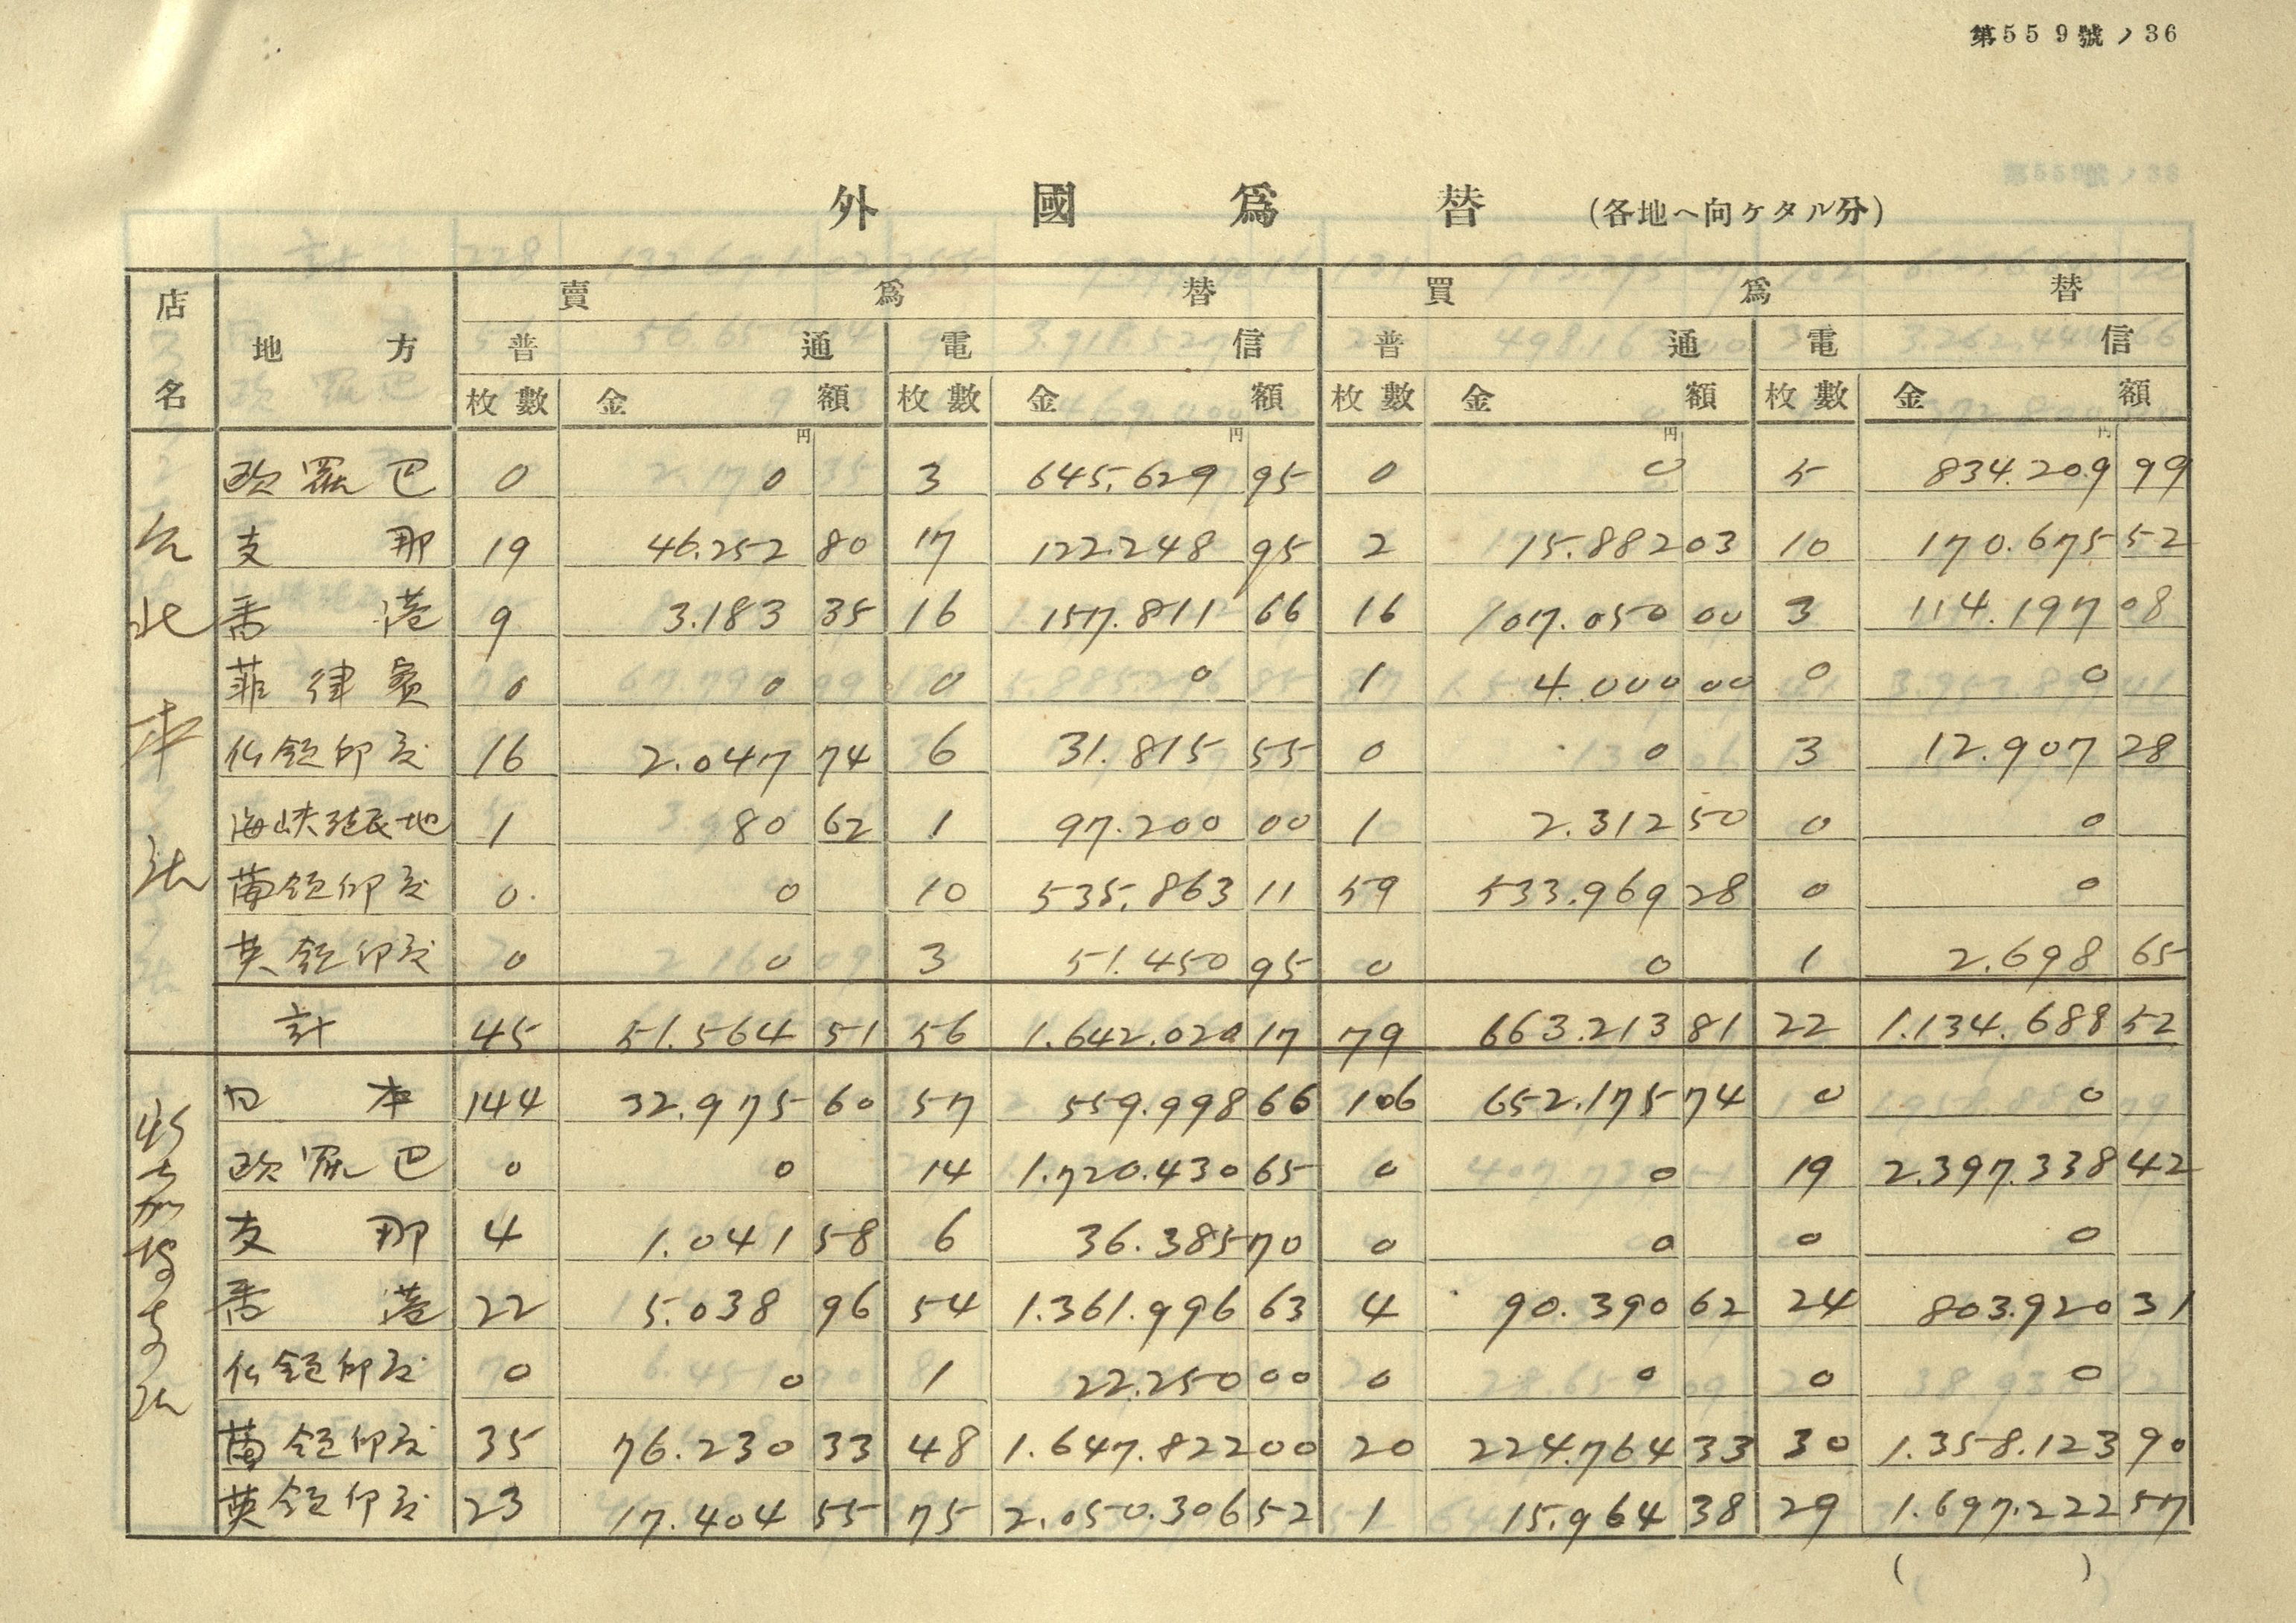 第559號ノ36
外國爲替 (各地ヘ向ケタル分)
店名 地方 賣爲替 買爲替
普通 電信 普通 電信
枚數 金額 枚數 金額 枚數 金額 枚數 金額
円 円 円 円
台北本店
欧羅巴 0 0 3 645.629 95 0 0 5 834.209 99
支那 19 46.252 80 17 122.248 95 2 15.882 03 10 170.675 52
香港 9 3.183 35 16 157.811 66 16 107.050 00 3 114.197 08
菲律賓 0 0 0 0 1 4.000 00 0 0
仏領印度 16 2.047 74 6 31.815 55 0 0 3 12.907 28
海峡殖民地 1 80 62 1 97.200 00 1 2.312 50 0 0
蘭領印度 0 0 10 535.863 11 59 533.969 28 0 0
英領印度 0 0 3 51.450 95 0 0 1 2.698 65
計 45 51.564 51 56 1.642.020 17 79 663.213 81 22 1.134.688 52
新嘉坡支店
日本 144 32.975 60 57 559.998 66 106 652.175 74 0 0
欧羅巴 0 0 14 1.720.430 65 0 0 19 2.397.338 42
支那 4 1.041 58 6 36.385 70 0 0 0 0
香港 22 5.038 96 54 1.361.996 63 4 90.390 62 24 803.920 31
仏領印度 0 0 1 22.250 00 0 0 0 0
蘭領印度 35 76.230 33 48 1.647.822 00 20 224.764 33 30 1.358.123 90
英領印度 23 17.404 55 75 2.050.306 52 1 15.964 38 29 1.697.222 57
( )